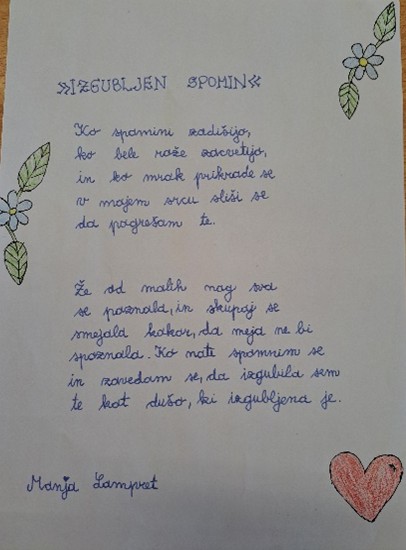 »IZGUBLJEN SPOMIN«
Ko spomini zadišijo,
ko bele rože zacvetijo,
in ko mrak prikrade se
v mojem srcu sliši se
da pogrešam te.
Že od malih nog sva
se poznala, in skupaj se
smejala kakor, da meja ne bi
spoznala. Ko nate spomnim se
in zavedam se, da izgubila sem
te kot dušo, ki izgubljena je.
Manja Lampret